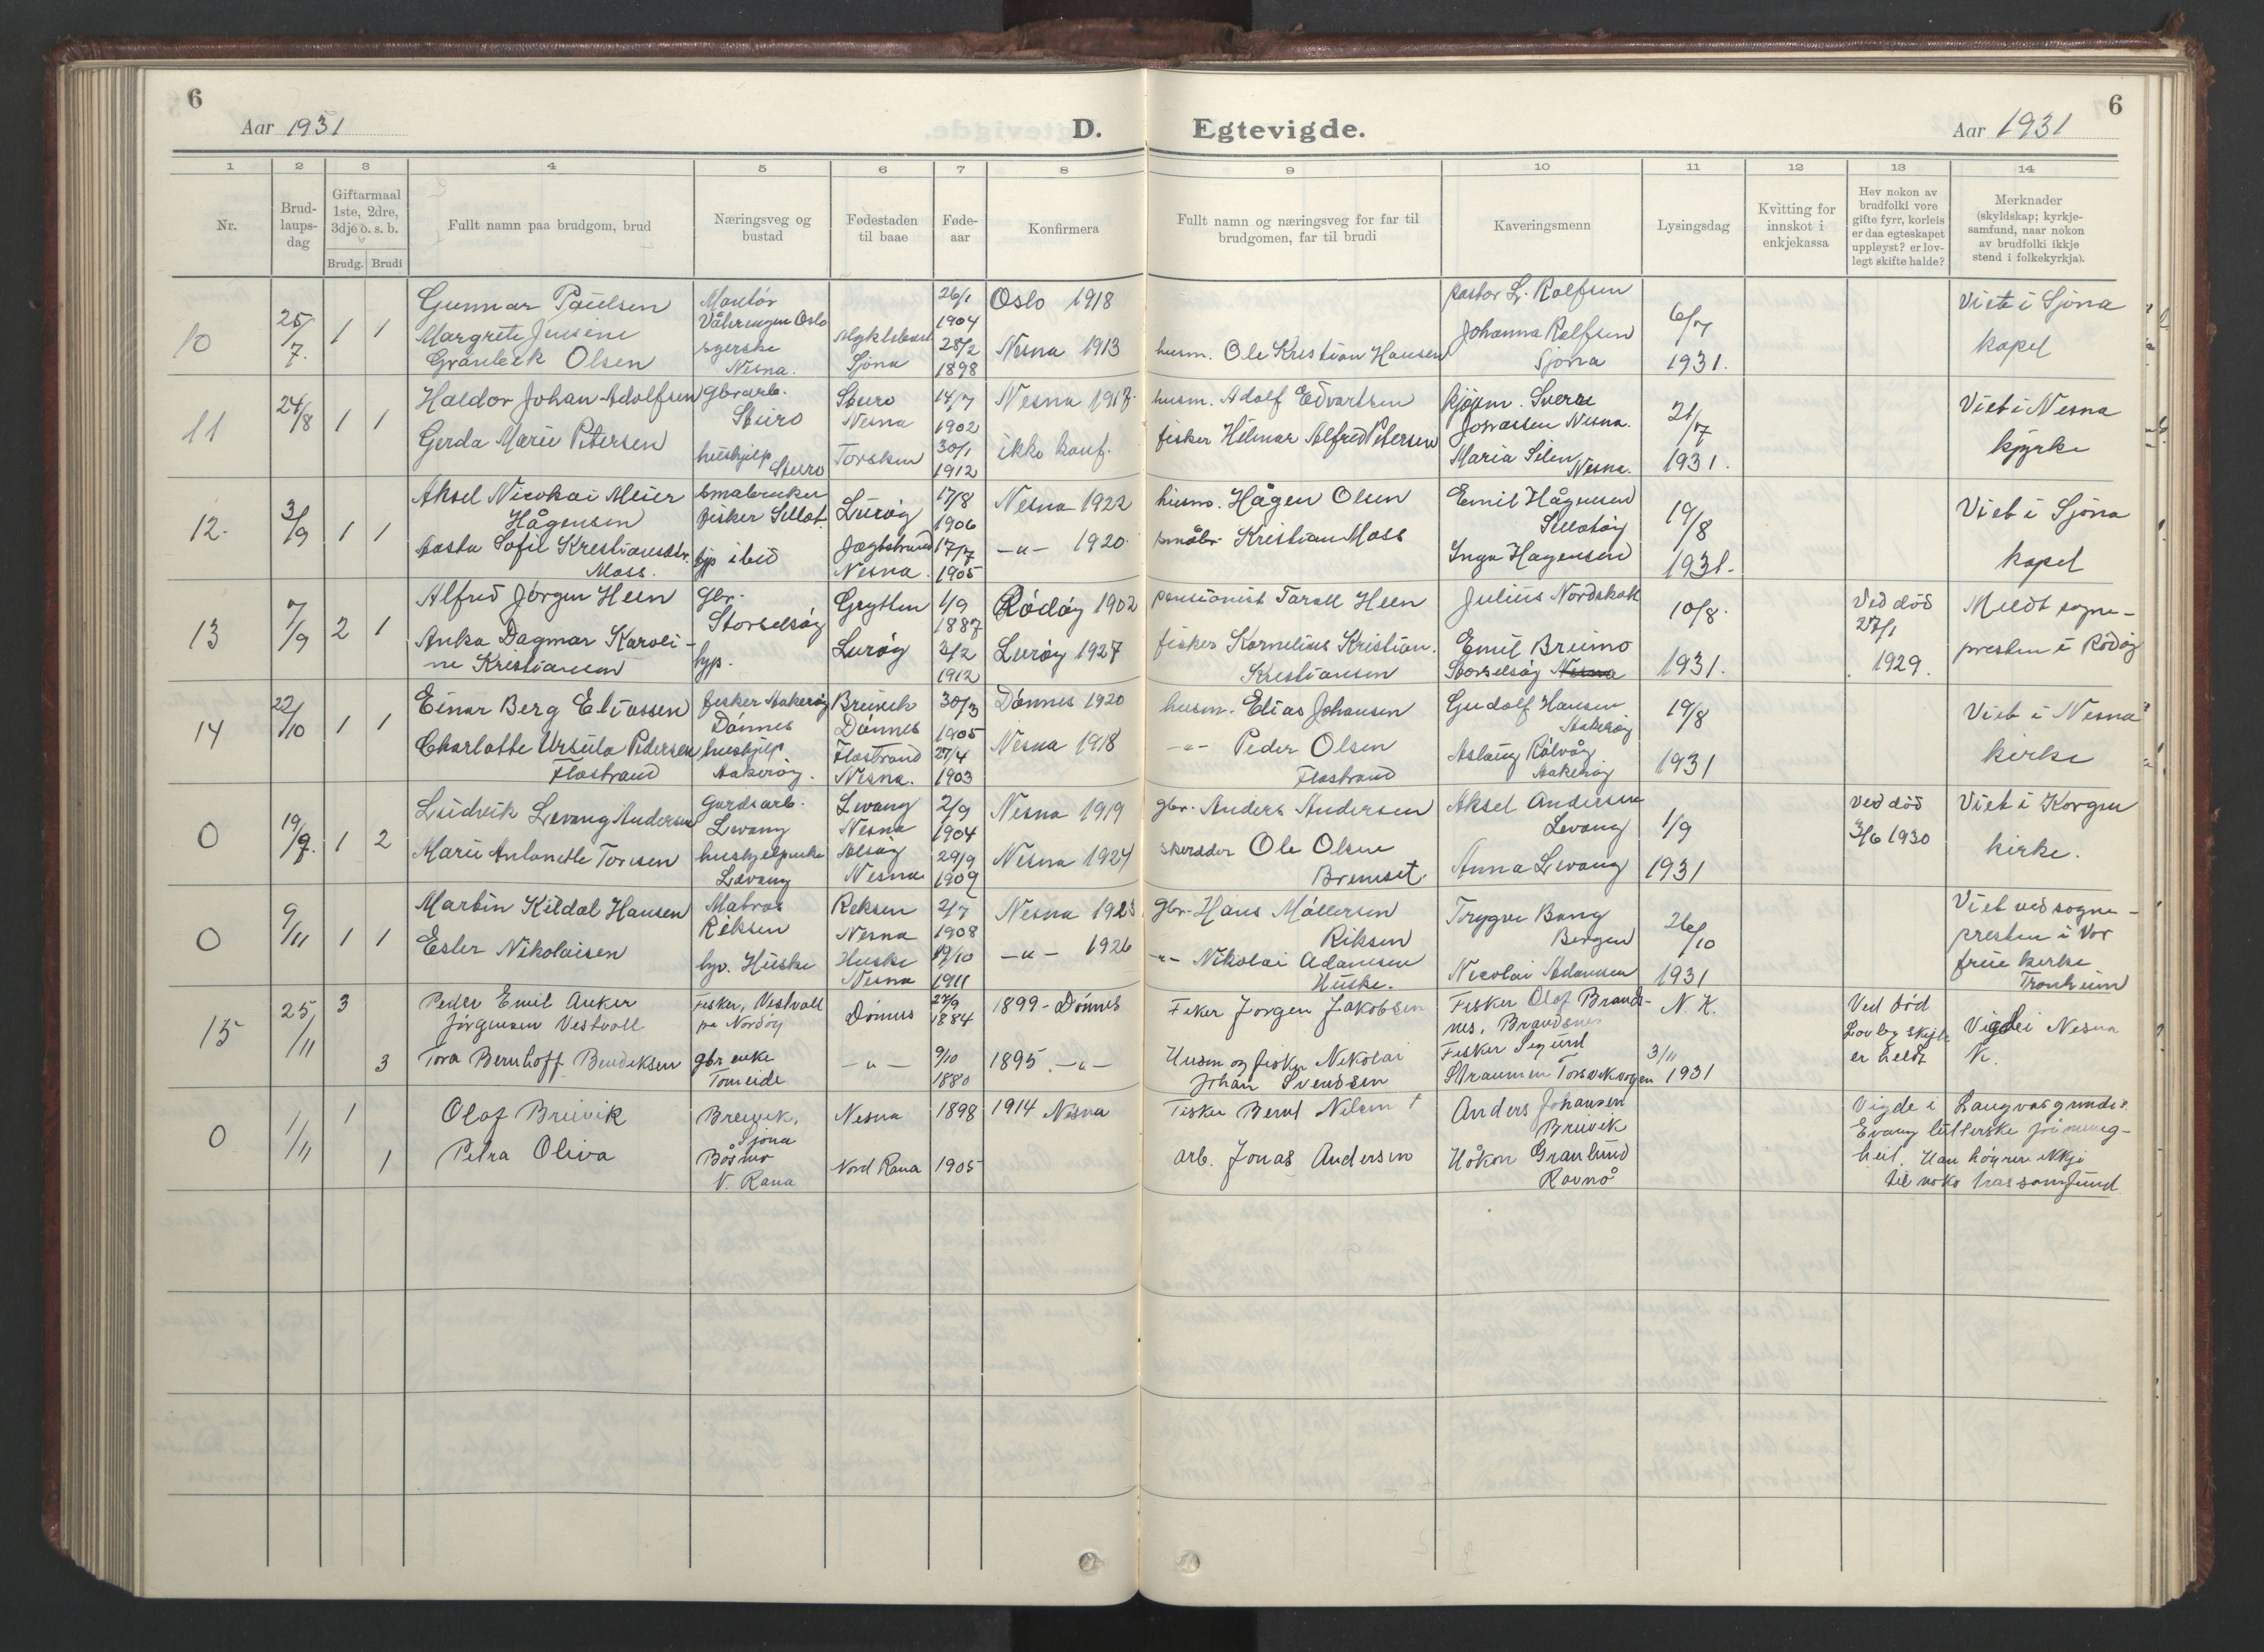 6
Aar 1931
D.
Egtevigde.
6
Aar 1931
1 2 3 4 5 6 7 8 9 10 11 12 13 14
Nr.
Brud-
laups-
dag
Giftarmaal
1ste, 2dre,
3dje o. s. b.
Brudg. Brudi
Fullt namn paa brudgom, brud
Næringsveg og
bustad
Fødestaden
til baae
Føde-
aar
Konfirmera
Fullt namn og næringsveg for far til
brudgomen, far til brudi
Kaveringsmenn
Lysingsdag
Kvitting for
innskot i
enkjekassa
Hev nokon av
brudfolki vore
gifte fyrr, korleis
er daa egteskapet
uppløyst? er lov-
legt skifte halde?
Merknader
(skyldskap; kyrkje-
samfund, naar nokon
av brudfolki ikkje
stend i folkekyrkja).
10
25/7.
1 1
Gunnar Paulsen
Margrete Jensine
Granbeck Olsen
Montör
Vålerengen Oslo
syerske
Nesna.
Sjona
26/1
1904
28/2
1898
Oslo 1918
Nesna 1913
husm. Ole Kristian Hansen
pastor L. Rolfsen
Johanna Rolfsen
Sjona
6/7
1931.
Viet i Sjona
kapel
11
24/8
1 1
Haldor Johan Adolfsen
Gerda Marie Petersen
gbrarb.
Sturo
hushjelp
Sturo
Sturo
Nesna
Torsken
14/7
1902
30/1
1912
Nesna 1917
ikke konf.
husm. Adolf Edvartsen
fisker Hilmar Alfred Petersen
kjøpm. Sverre
Jonassen Nesna.
Maria Selen Nesna.
21/7
1931.
Viet i Nesna
kyrke
12.
3/9
1 1
Aksel Nicokai Meier
Hågensen
Aasta Sofie Kristiansdtr.
Moss.
Småbruker
fisker Sellöt.
hjp ibid
Luröy
Jægtstrand
Nesna.
17/8
1906
17/7
1905
Nesna 1922
-"- 1920.
husm. Hågen Olsen
småbr. Kristian Moss
Emil Hågensen
Selletöy
Inga Hagensen
19/8
1931.
Viet i Sjona
kapel
13
7/9
2 1
Alfred Jørgen Heen
Anka Dagmar Karoli-
ne Kristiansen
Gbr.
Storselsöy
hjp.
Grytten
Luröy
1/9
1887
2/2
1912
Rödöy 1902
Luröy 1927
pensionist Tarall Heen
fisker Kornelius Kristian.
Kristiansen
Julius Nordskak
Emil Breimo
Storselsöy Nesna
10/8.
1931.
Ved död
27/1
1929.
Meldt sogne-
presten i Rödöy
14
22/10
1 1
Einar Berg Eliassen
Charlotte Ursula Pedersen
Flostrand
fisker Aakeröy
Dönnes
hushjelp
Aakeröy.
Breivik
Dönnes
Flostrand
Nesna.
30/3
1905
27/4
1903
Dönnes 1920
Nesna 1918
husm. Elias Johansen
-"- Peder Olsen
Flostrand
Gudolf Hansen
Aakeröy
Aslaug Rölvåg
Aakeröy
19/8
1931
Viet i Nesna
kirke
0
19/9.
1 2
Ludvik Levang Andersen
Marie Antonette Toresen
Gardsarb.
Levang
hushjelperske
Levang
Levang
Nesna
Alsöy
Nesna
2/9
1904
29/9
1909
Nesna 1919
Nesna 1924
gbr. Anders Andersen
skredder Ole Olsen
Bremset.
Aksel Andersen
Levang
Anna Levang
1/9
1931
Ved död
3/6 1930
Viet i Korgen
kirke.
0
9/11
1 1
Martin Kildal Hansen
Ester Nikolaisen
Matros
Reksen
hjp. Huske
Reksen
Nesna
Huske
Nesna
2/7
1908
19/10
1911
Nesna 1923
-"- 1926
gbr. Hans Möllersen
Reksen
-"- Nikolai Adamsen
Huske.
Trygve Bang
Bergen
Nicolai Adamsen
26/10
1931
Viet ved sogne-
presten i Vor
frue kirke
Tronheim
15
25/11
3
3
Peder Emil Anker
Jörgensen Vestvoll
Tora Bernhoff Bendiksen
Fisker, Vestvoll
på Nordöy
gbr enke
Tomeide
Dönnes
-"-
27/9
1884
9/10
1880
1899 - Dönnes
1895 -"-
Fisker Jorgen Jakobsen
Husm og fisker Nikolai
Johan Svendsen
Fisker Olaf Brands-
nes, Brandsnes
Fisker Sigurd
Straumen Torsvikvogen
N. K.
3/11
1931
Ved död
Lovleg skifte
er heldt
Vigde i Nesna
K.
0
1/11
1
1
Olaf Breivik
Petra Oliva
Breivik,
Sjona
Båsmo
N. Rana
Nesna
Nord Rana
1898
1905
1914 Nesna
Fisker Bernt Nilsen †
arb. Jonas Andersen
Anders Johansen
Breivik
Håkon Granlund
Ravnå
Vigde i Langvasgrunds
Evang lutterske frimenig-
heit. Han höyrer ikkje
til noko trassamfund.